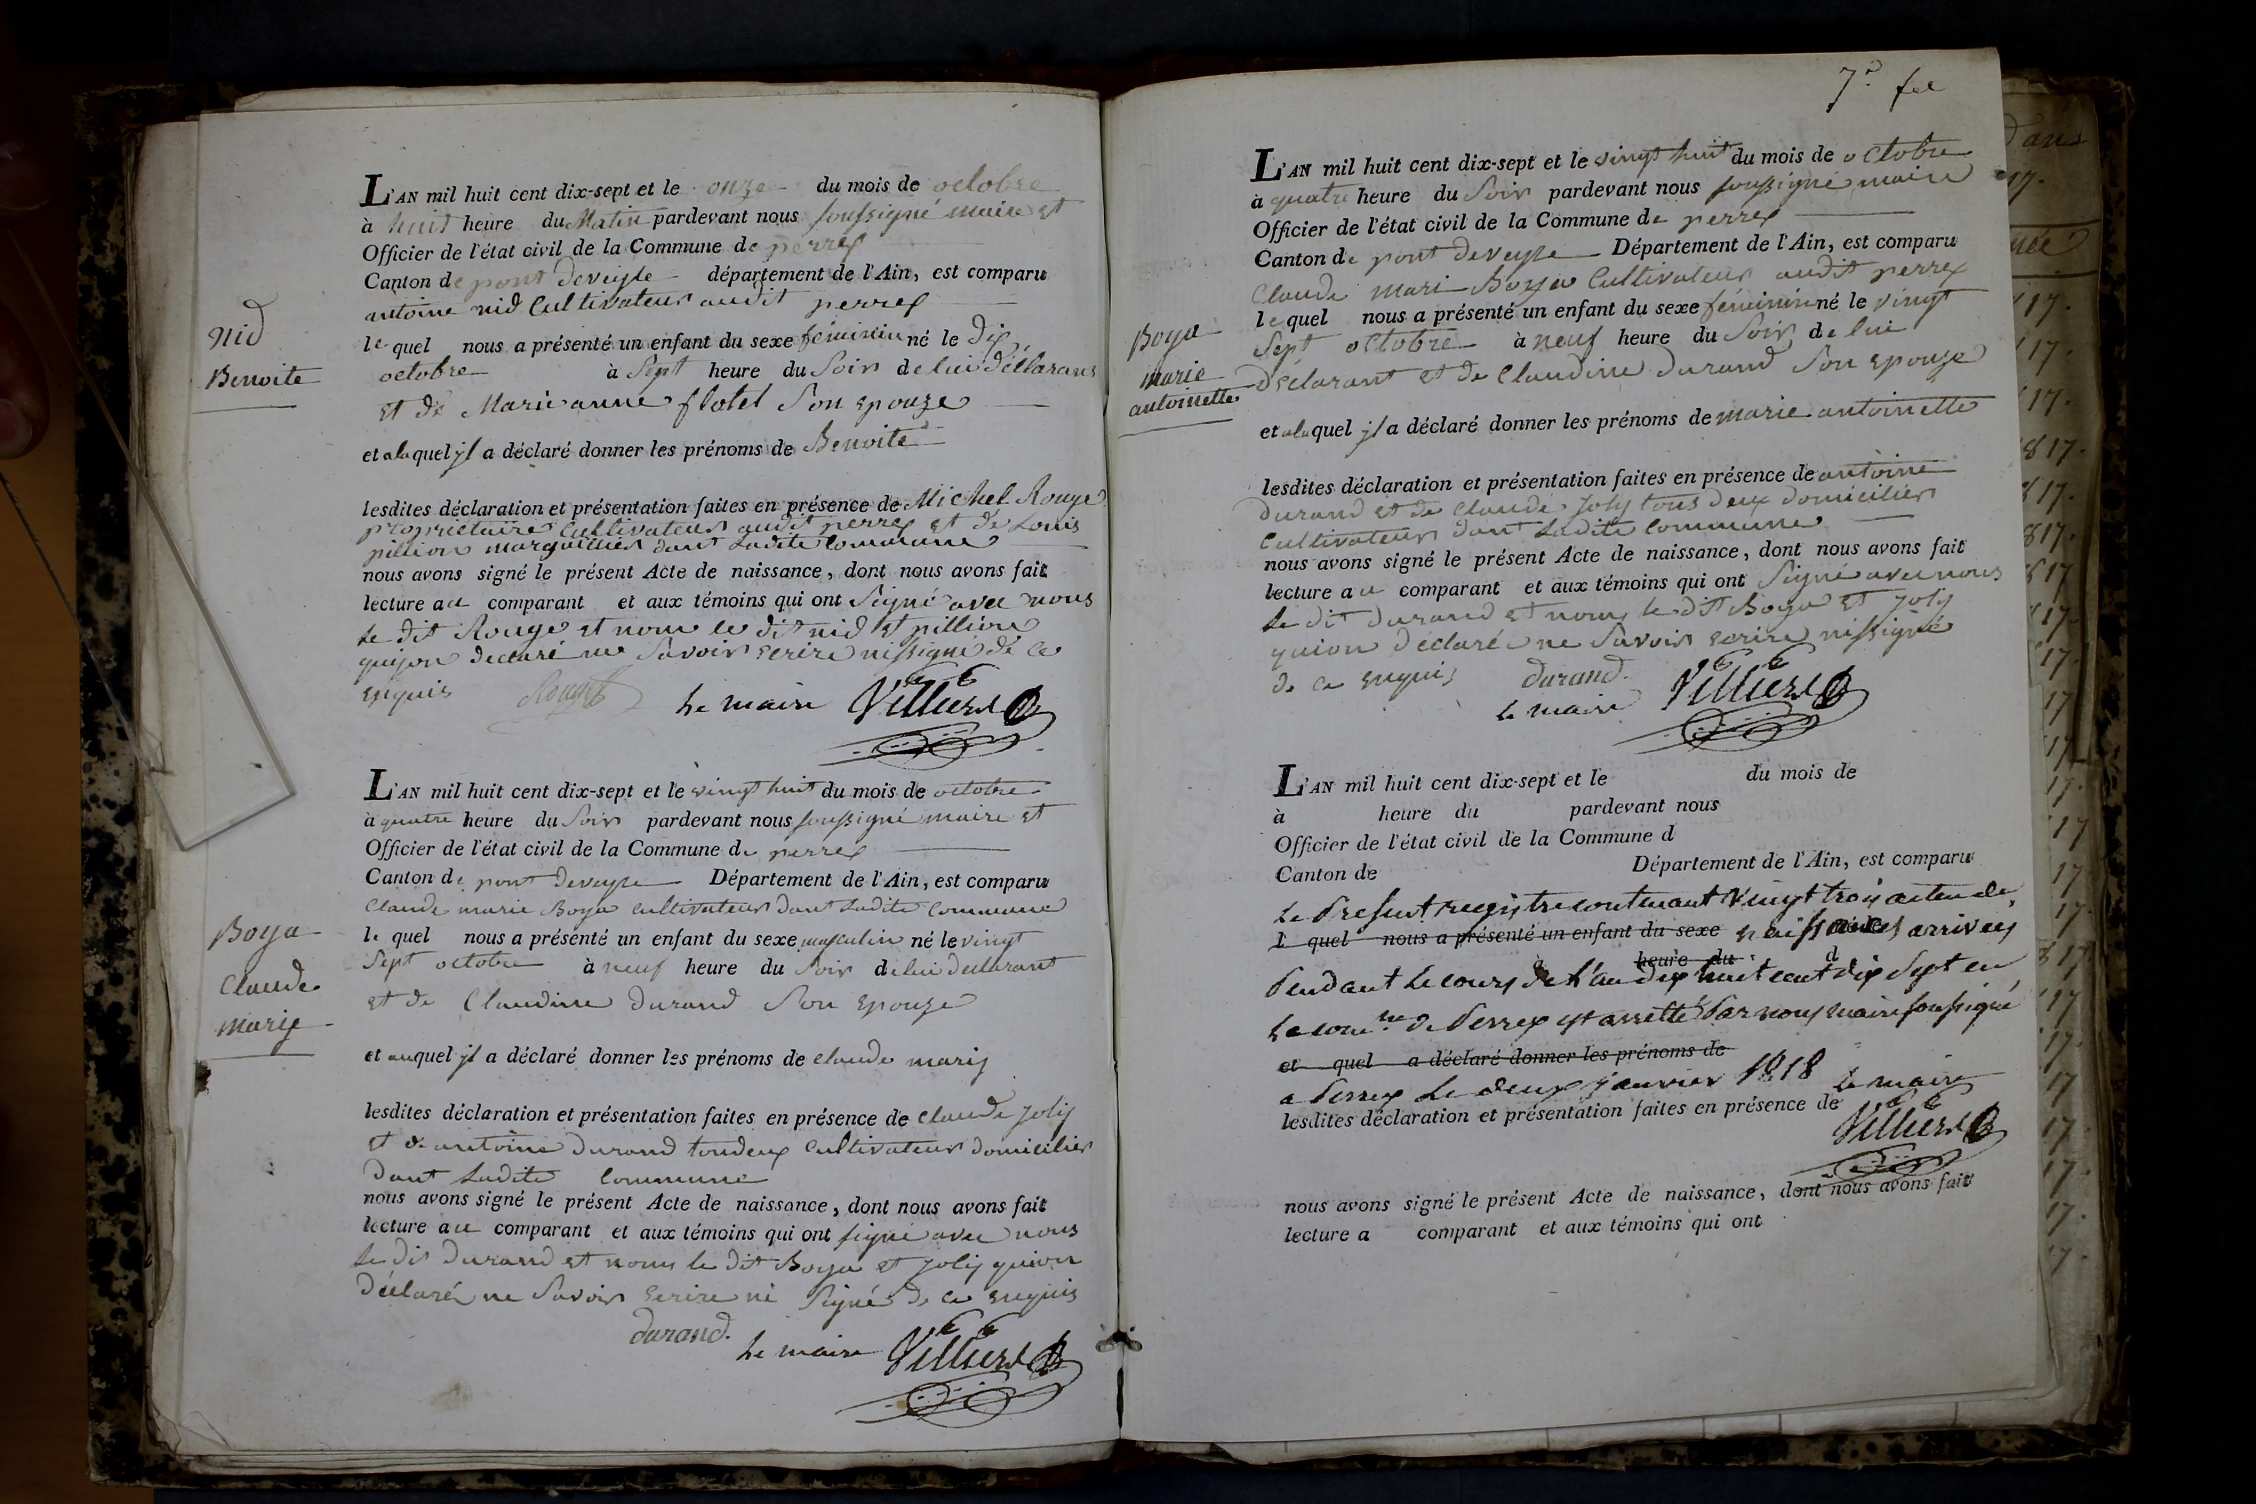 nid
Benoite
L'AN mil huit cent dix-sept et le onze du mois de octobre
à huit heure du Matin pardevant nous soussigné maire et
Officier de l'état civil de la Commune de perrex
Canton de pont deveyle département de l'Ain, est comparu
antoine nid Cultivateur audit perrex
le quel nous a présenté un enfant du sexe féminin né le Dix
octobre à Sept heure du Soir de lui déclarant
et de Marie anne flotet Son epouze
et a la quel jl a déclaré donner les prénoms de Benoite
lesdites déclaration et présentation faites en présence de Michel Rouge
propriétaire Cultivateur audit perrex et de Louis
pillion marguillier dant Ladite Commune
nous avons signé le présent Acte de naissance, dont nous avons fait
lecture au comparant et aux témoins qui ont Signé avec nous
Le dit Rouge et nom le dit nid et pillion
quijon declaré ne Savoir ecrire nissigné de ce
enquis Le maire Villierd
Boya
Claude
marix
L'AN mil huit cent dix-sept et le vingt huit du mois de octobre
à quatre heure du Soir pardevant nous soussigné maire et
Officier de l'état civil de la Commune de perrex
Canton de pont deveyle Département de l'Ain, est comparu
Claude marie Boya cultivateur dant Ladite Commune
le quel nous a présenté un enfant du sexe masculin né le vingt
Sept octobre à neuf heure du Soir de lui declarant
et de Claudine Durand Son epouze
et auquel jl a déclaré donner les prénoms de Claude marij
lesdites déclaration et présentation faites en présence de Claude Jolij
et de antoine Durand toudeux Cultivateur domicilier
dant Ladite Commune
nous avons signé le présent Acte de naissance, dont nous avons fait
lecture au comparant et aux témoins qui ont signé avec nous
Le dit Durand et nom le dit Boya et Jolij quion
Déclaré ne Savoir ecrire ni Signé de ce enquis
durand.
Le maire Villierd
7.e fel
Boya
marie
antoinette
L'AN mil huit cent dix-sept et le vingt huit du mois de octobre
à quatre heure du Soir pardevant nous soussigné maire
Officier de l'état civil de la Commune de perrex
Canton de pont deveyle Département de l'Ain, est comparu
Claude mari Boya Cultivateur audit perrex
le quel nous a présenté un enfant du sexe féminin né le vingt
Sept octobre à neuf heure du Soir de lui
déclarant et de Claudine Durand Son epouze
et a la quel jl a déclaré donner les prénoms de marie antoinette
lesdites déclaration et présentation faites en présence de antoine
Durand et de Claude Joly tous deux domicilier
Cultivateur dant Ladite Commune
nous avons signé le présent Acte de naissance, dont nous avons fait
lecture au comparant et aux témoins qui ont Signé avec nous
Le dit durand et nom le dit Boya et Jolij
quion déclaré ne Savoir ecrire nissigné
de ce enquis durand.
Le maire Villierd
L'AN mil huit cent dix-sept et le du mois de
à heure du pardevant nous
Officier de l'état civil de la Commune d
Canton de Département de l'Ain, est comparu
Le Present registre contenant Vingt trois actes de
l quel nous a présenté un enfant du sexe naissances arrivees
à heure du d
Pendant Le cours de l'an dix huit cent dix Sept en
La com.ne de Perrex est arretté Par nous maire soussigné
et quel a déclaré donner les prénoms de
a Perrex Le deux janvier 1818 Le maire
lesdites déclaration et présentation faites en présence de
Villierd
nous avons signé le présent Acte de naissance, dont nous avons fait
lecture a comparant et aux témoins qui ont